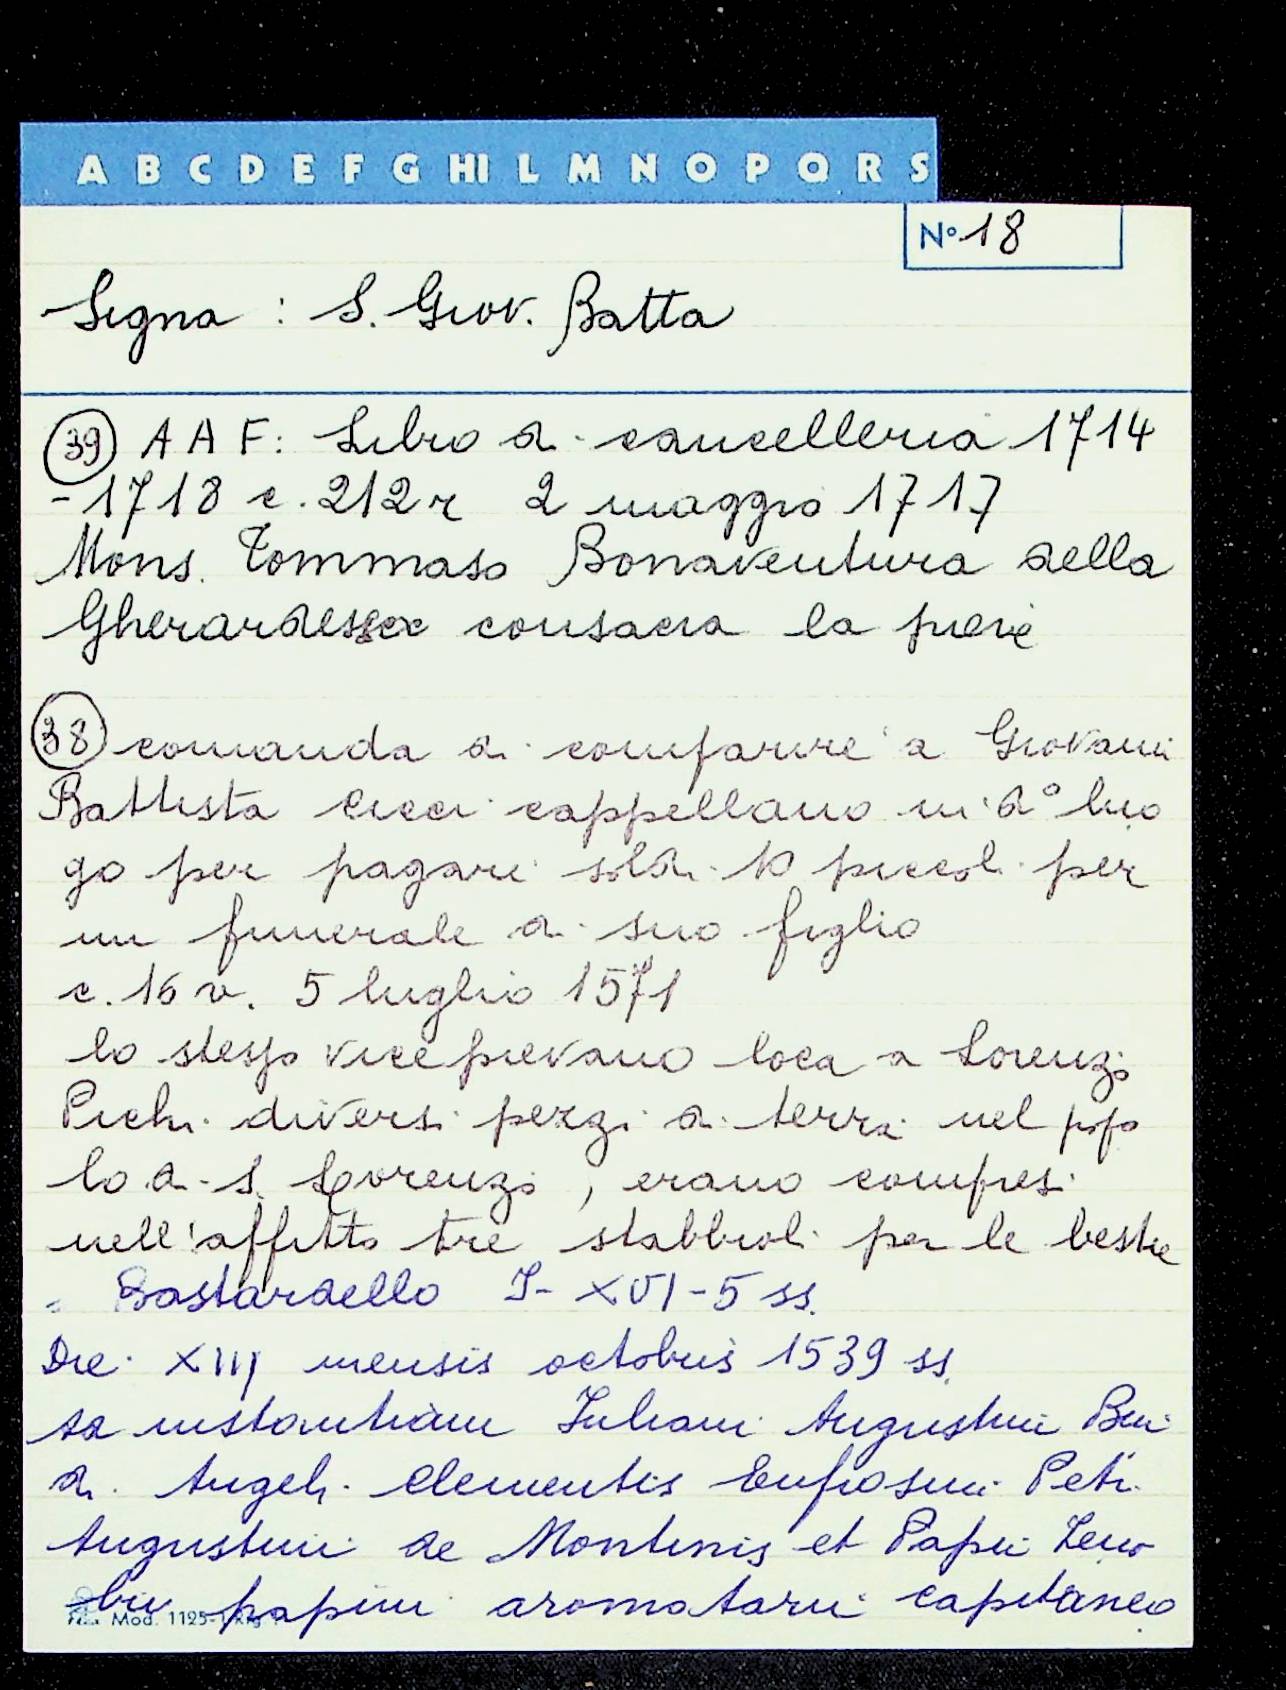 A B C D E F G HI L M N O P Q R S
N° 18
Signa : S. Giov. Batta
39 A A F: Libro di cancelleria 1714
-1718 c. 212 r 2 maggio 1717
Mons. Tommaso Bonaventura della
Gherardesca consacra la pieve
38 comanda di comparire a Giovanni
Battista Cicci cappellano in d° luo
go per pagare soldi 10 piccoli per
un funerale di suo figlio
c. 16 v. 5 luglio 1571
lo stesso vice pievano loca a Lorenzo
Pichi diversi pezzi di terra nel popo
lo di S. Lorenzo, erano compresi
nell'affitto tre stabbioli per le bestie
Bastardello I - XVI - 5 ss.
Die XIII mensis octobris 1539 ss.
ad instantiam Iuliani Augustini Bini
di Angeli Clementis Eufrosini Petri
Augustini de Montinis et Papii Zeno
bii papini aromatarii capitaneo
Mod. 1125-